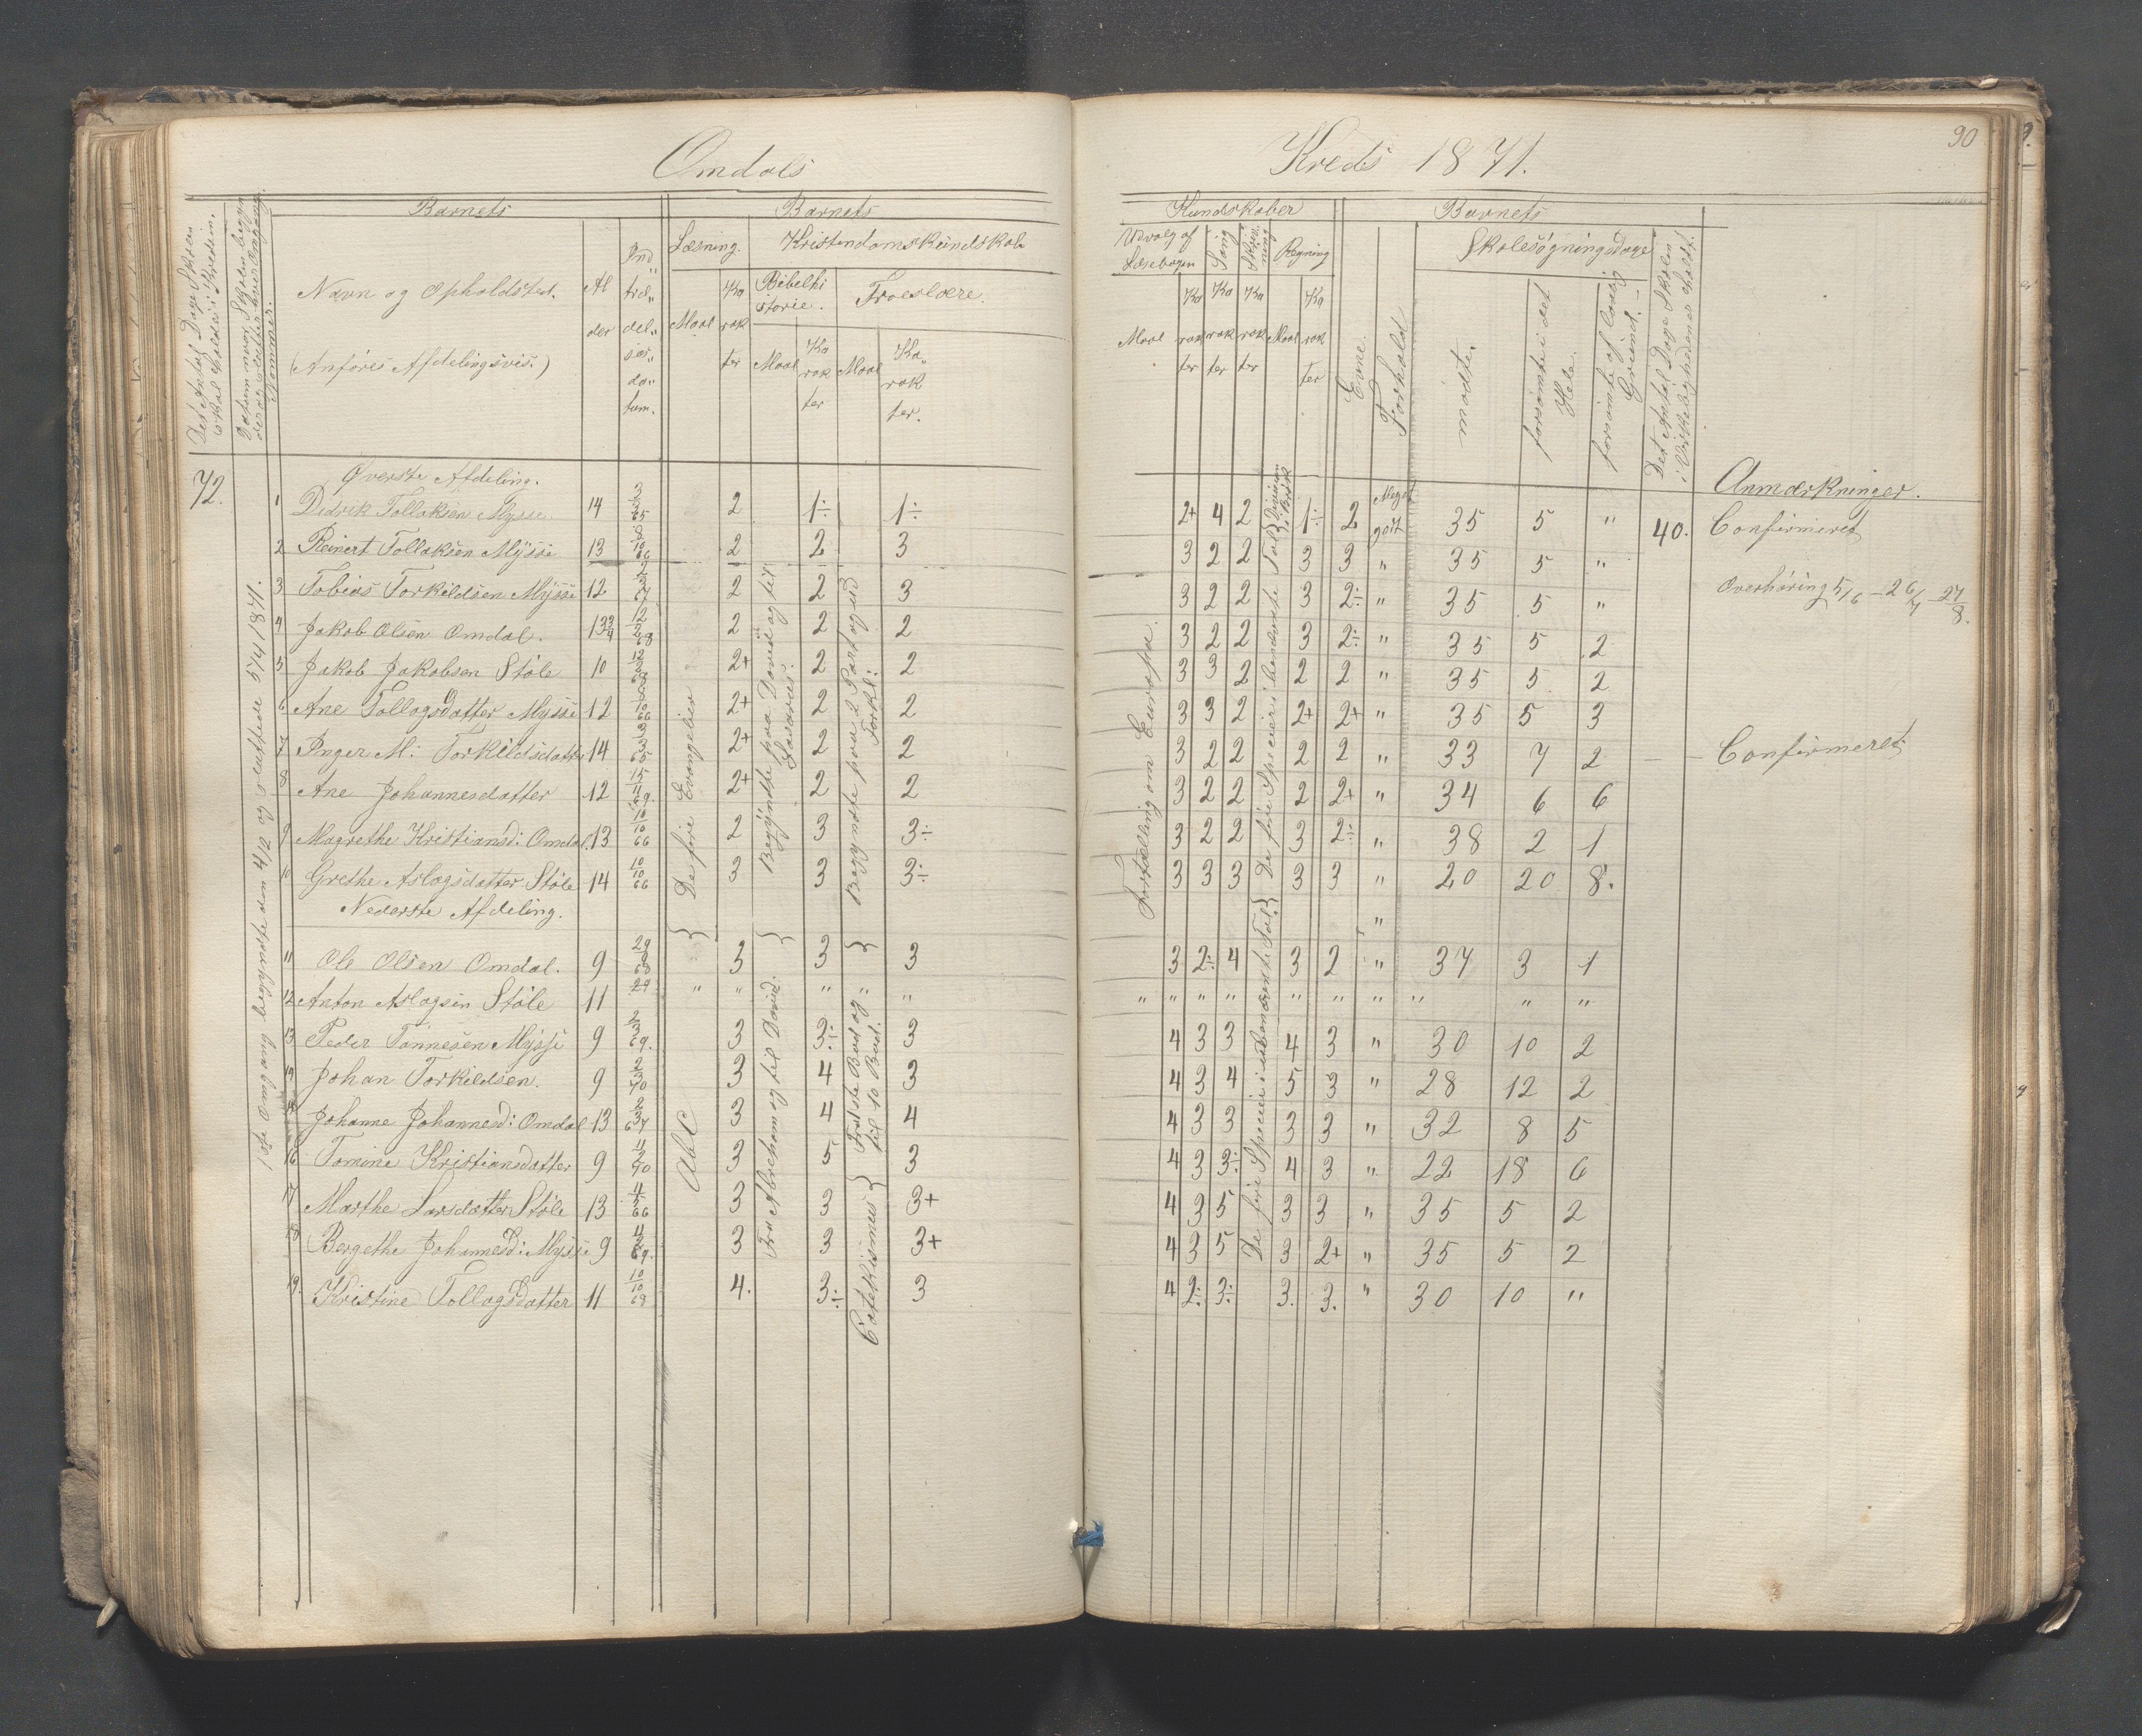 Omdals
Kreds 1871.
90
Det Antal Dage Skolen skal holdes i Kredsen.
Datum naar Skolen begynder og slutter hver Omgang.
Nommer.
Barnets
Navn og Opholdsted.
(Anføres Afdelingsvis.)
Al der
Ind træ del ses da tum.
Barnets
Læsning.
Maal
Ka rak ter
Kristendomskundskab
Bibelhi storie.
Maal
Ka rak ter
Troeslære.
Maal
Ka rak ter.
Kundskaber
Udvalg af Læsebogen
Maal
Ka rak ter
Sang
Ka rak ter
Skriv ning
Ka rak ter
Regning
Maal
Ka rak ter
Barnets
Evne.
Forhold
Skolesøgningsdage
mødte.
forsømte i det Hele.
forsømte af lovlig Grund.
Det Antal Dage Skolen i Virkeligheden er holdt.
Anmærkninger.
72.
1ste Omgang begyndte den 4/2 og sluttede 5/4 1871.
De fire Evangelier
Begyndte paa David og til Lasarus.
Begyndte paa 2 Part og ud Forkl:
Fortælling om Europa.
De fire Specier i benævnte Tal
Division i Brøk
Øverste Afdeling.
1 Didrik Tollaksen Mysse 14 2 1÷ 1÷ 2+ 4 2 1÷ 2 Meget godt 35 5 " 40. Confirmeret
2 Reinert Tollaksen Mysse 13 2 2 3 3 2 2 3 3 " 35 5 "
3 Tobias Torkildsen Mysse 12 2 2 3 3 2 2 3 2÷ " 35 5 " Overhøring 5/6 – 26/7 – 27/8.
4 Jakob Olsen Omdal. 13¾ 2 2 2 3 2 2 3 2÷ " 35 5 2
5 Jakob Jakobsen Støle 10 2+ 2 2 3 3 2 2 2 " 35 5 2
6 Ane Tollagsdatter Mysse 12 2+ 2 2 3 3 2 2+ 2+ " 35 5 3
7 Inger M: Torkildsdatter 14 2+ 2 2 3 2 2 2 2 " 33 7 2 Confirmeret
8 Ane Johannesdatter 12 2+ 2 2 3 2 2 2 2+ " 34 6 6
9 Magrethe Kristiansd: Omdal. 13 10/10 66 2 3 3÷ 3 2 2 3 2÷ " 38 2 1
10 Grethe Aslagsdatter Støle 14 10/10 66 3 3 3÷ 3 3 3 3 3 " 20 20 8.
Nederste Afdeling. "
AbC
Fra Abraham og til David.
Første Bud og til 10 Bud.
Catekismus
De fire Specier i ubenævnte Tal
11 Ole Olsen Omdal. 9 3 3 3 3 2÷ 4 3 2 " 37 3 1
12 Anton Aslagsen Støle 11 29 " " " " " " " " " " " " " "
13 Peder Tønnesen Mysse 9 3 3÷ 3 4 3 3 4 3 " 30 10 2
14 Johan Torkildsen. 9 3 4 3 4 3 4 5 3 " 28 12 2
15 Johanne Johannesd: Omdal 13 3 4 4 4 3 3 3 3 " 32 8 5
16 Tomine Kristiansdatter 9 3 5 3 4 3 3÷ 4 3 " 22 18 6
17 Marthe Larsdatter Støle 13 3 3 3+ 4 3 5 3 3 " 35 5 2
18 Bergethe Johannesd: Mysse 9 3 3 3+ 4 3 5 3 2+ " 35 5 2
19. Kristine Tollagsdatter 11 10/10 68 4. 3÷ 3 4 2÷ 3÷ 3. 3. " 30 10 "